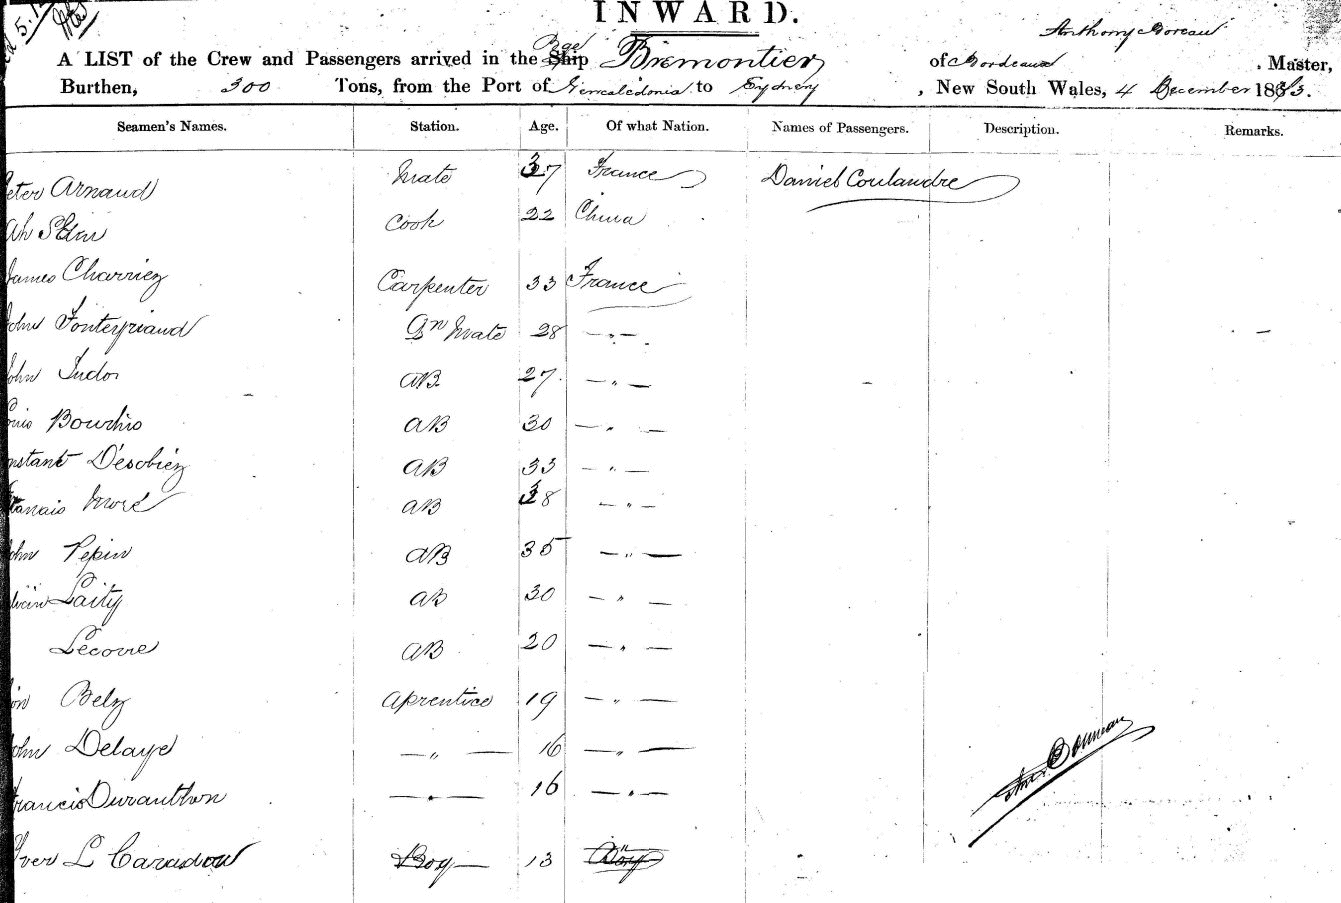 INWARD.
Anthony Boreau
A LIST of the Crew and Passengers arrived in the Ship Bge Bremontier of Bordeaux , Master,
Burthen, 300 Tons, from the Port of Newcaledonia to Sydney , New South Wales, 4 December 1863.
Seamen's Names. Station. Age. Of what Nation. Names of Passengers. Description. Remarks.
Peter Arnaud Mate 37 France Daniel Coulaudre
Ah Cook 22 China
James Charriez Carpenter 33 France
John Fonteyriaud 2n Mate 28 — " —
John Tudor AB 27 — " —
Louis Bourhis AB 30 — " —
nstant D'esobiéz AB 33 — " —
Moré AB 38 — " —
John Pepin AB 35 — " —
Laity AB 30 — " —
Lecovre AB 20 — " —
Belz Aprentice 19 — " —
John Delaye — " — 16 — " —
Francis Duranthon — " — 16 — " —
Yver L Caradou Boy 13 "